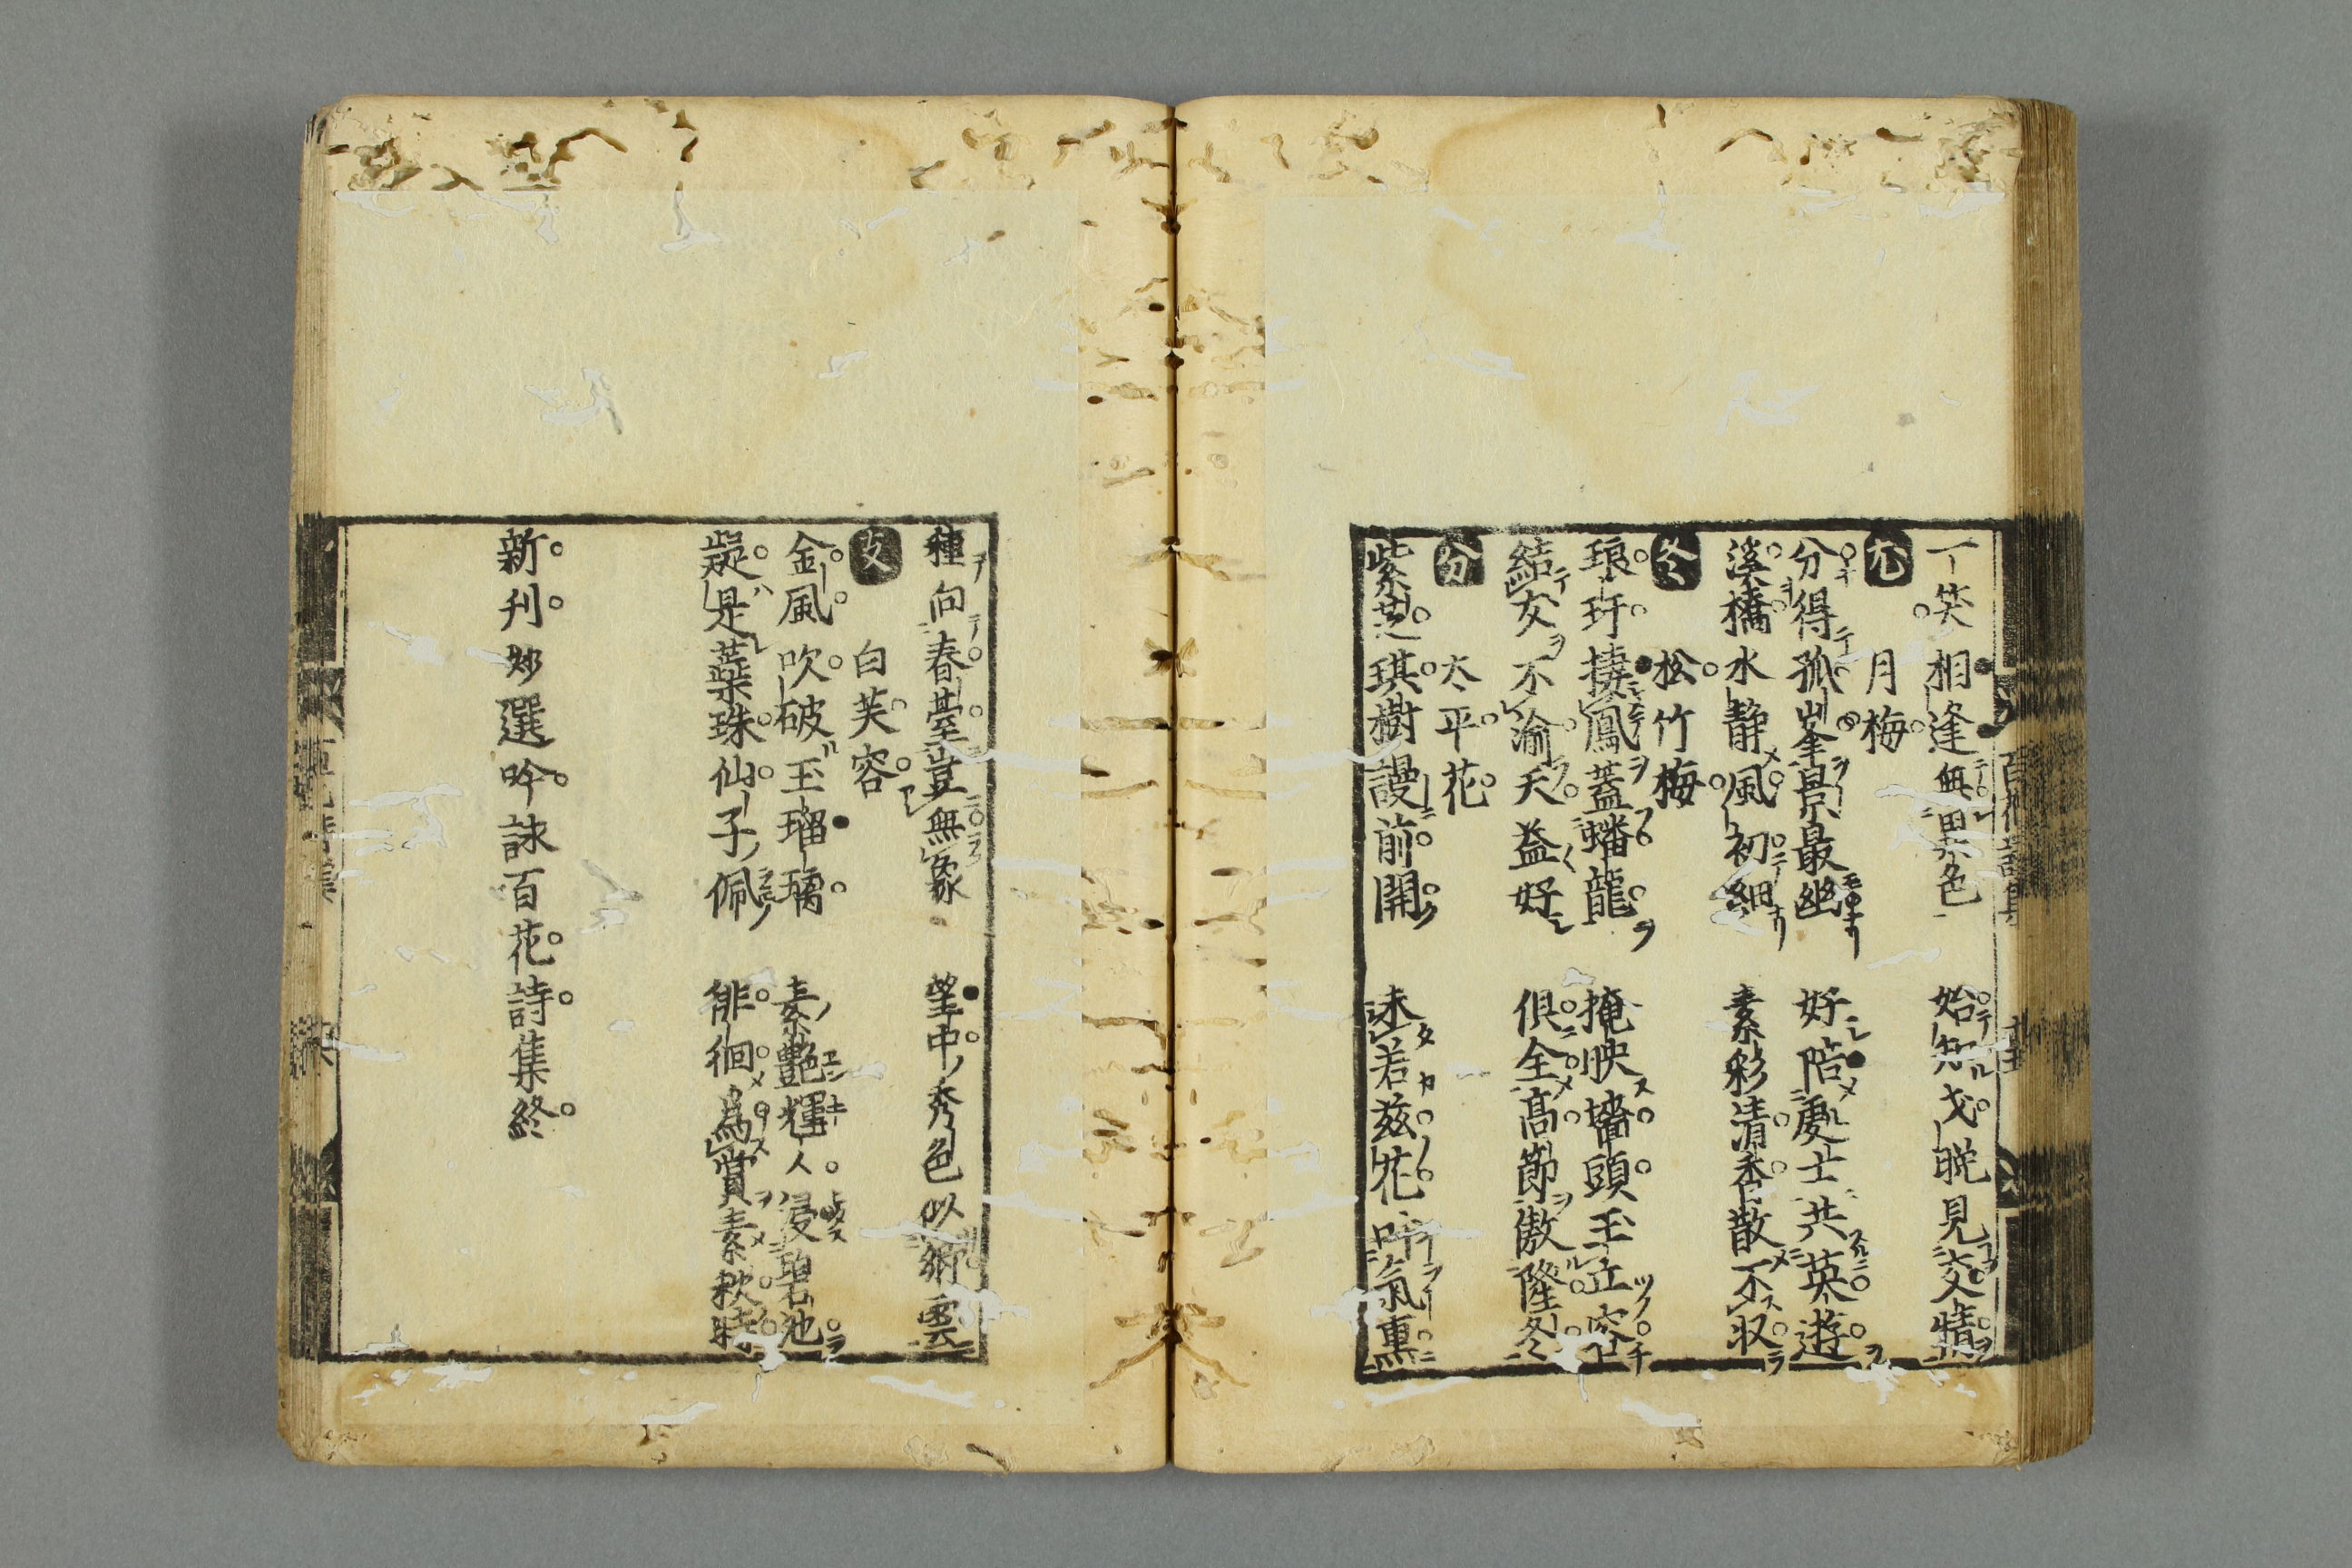 一笑相逢無異色　始知戈晩見交情
尤　月梅
分得孤峯景最幽　好陪處士共英遊
溪橋水静風初細　素彩清香散不収
冬　松竹梅
琅玕捿鳳蓋蟠龍　掩映墻頭玉立容
結友不渝天益好　俱全高節傲隆冬
分　太平花
紫芝琪樹謾前開　若茲花叶氣熏
種向春臺豈無象　望中秀色似卿雲
支　白芙容
金風吹破玉瑠璃　素艶輝人浸碧池
疑是蘂珠仙子佩　徘徊為賞素秋時
新刋妙選吟詠百花詩集終